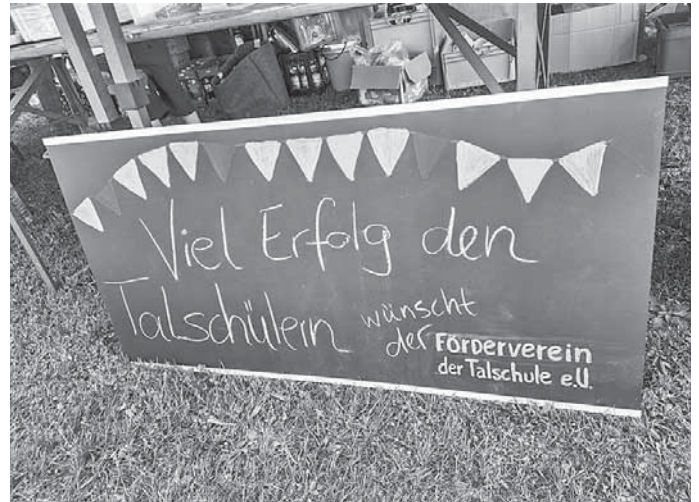 Viel Erfolg den
Talschülern wünscht
der Förderverein
der Talschule e.V.